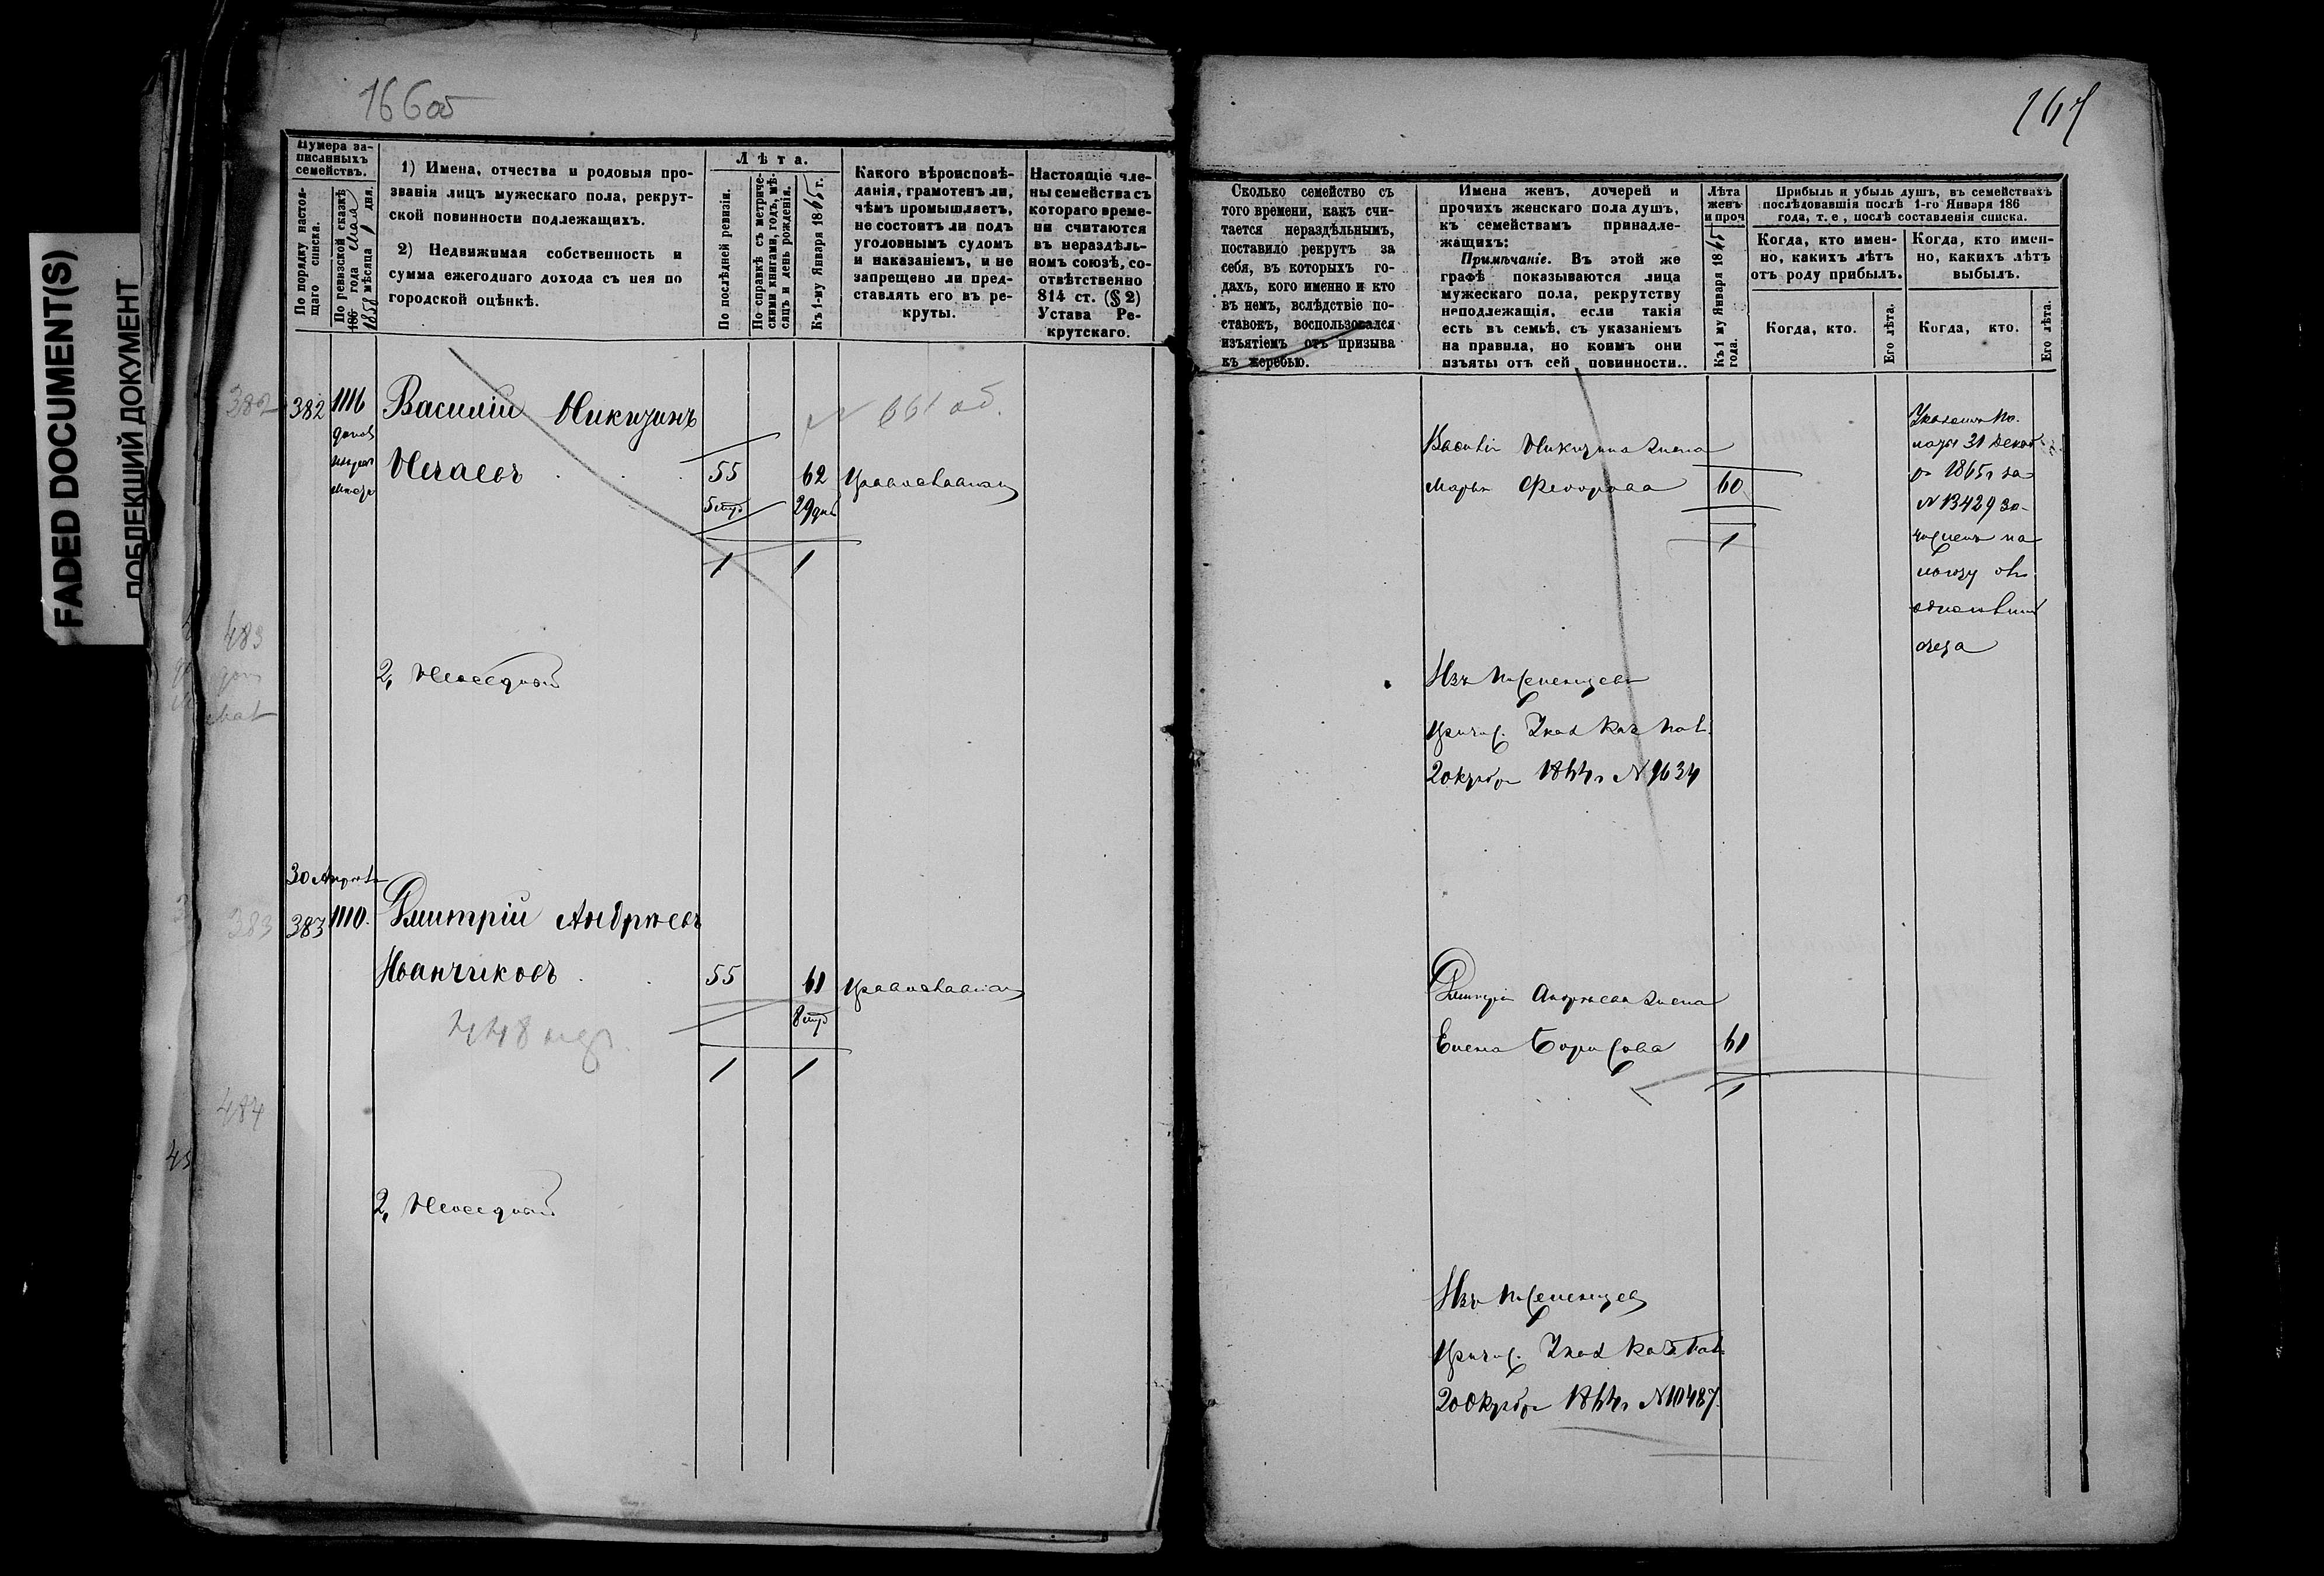 166об
FADED DOCUMENT(S)
ПОБЛЕКШИЙ ДОКУМЕНТ
Нумера за-
писанныхъ
семействъ.
По порядку настоя-
щаго списка.
По ревизской сказкѣ
186 года мая
1858 мѣсяца 1 дня.
1) Имена, отчества и родовыя про-
званія лицъ мужескаго пола, рекрут-
ской повинности подлежащихъ.
2) Недвижимая собственность и
сумма ежегоднаго дохода съ нея по
городской оцѣнкѣ.
Лѣта.
По послѣдней ревизіи.
По справкѣ съ метриче-
скими книгами, годъ, мѣ-
сяцъ и день рожденія.
Къ 1-му Января 1865 г.
Какого вѣроисповѣ-
данія, грамотенъ ли,
чѣмъ промышляетъ,
не состоитъ ли подъ
уголовнымъ судомъ
и наказаніемъ, и не
запрещено ли пред-
ставлять его въ ре-
круты.
Настоящіе чле-
ны семейства съ
котораго време-
ни считаются
въ нераздѣль-
номъ союзѣ, со-
отвѣтственно
814 ст. (§ 2)
Устава Ре-
крутскаго.
382 382 1116 Василій Никитинъ
Нечаевъ 55 62 Православнаго
1 1
483
2, Неосѣдлый
30 Августа
383 383 1110. Дмитрій Андрѣевъ
Иванчиковъ 55 61 Православнаго
448
1 1
484
2, Неосѣдлый
167
Сколько семейство съ
того времени, какъ счи-
тается нераздѣльнымъ,
поставило рекрутъ за
себя, въ которыхъ го-
дахъ, кого именно и кто
въ немъ, вслѣдствіе по-
ставокъ, воспользовался
изъятіемъ отъ призыва
къ жеребью.
Имена женъ, дочерей и
прочихъ женскаго пола душъ,
къ семействамъ принадле-
жащихъ:
Примѣчаніе. Въ этой же
графѣ показываются лица
мужескаго пола, рекрутству
неподлежащія, если такія
есть въ семьѣ, съ указаніемъ
на правила, по коимъ они
изъяты отъ сей повинности..
Лѣта
женъ
и проч
Къ 1 му Января 1865
года.
Прибыль и убыль душъ, въ семействахъ
послѣдовавшія послѣ 1-го Января 186
года, т. е., послѣ составленія списка.
Когда, кто имен-
но, какихъ лѣтъ
отъ роду прибылъ.
Когда, кто имен-
но, какихъ лѣтъ
выбылъ.
Когда, кто.
Его лѣта.
Когда, кто.
Его лѣта.
Василія Никитина жена
Марья Федорова 60
1
Указомъ Па-
латы 31 декаб
ря 1865г за
N 13429 за-
численъ на
Изъ
Причис. Указ Каз Пал.
2 октября 1844г N 9634
Дмитрія Андрѣева жена
Елена Борисова 61
1
Изъ
Причис. Указ Каз Пал
20 октября 1844г N 10487.